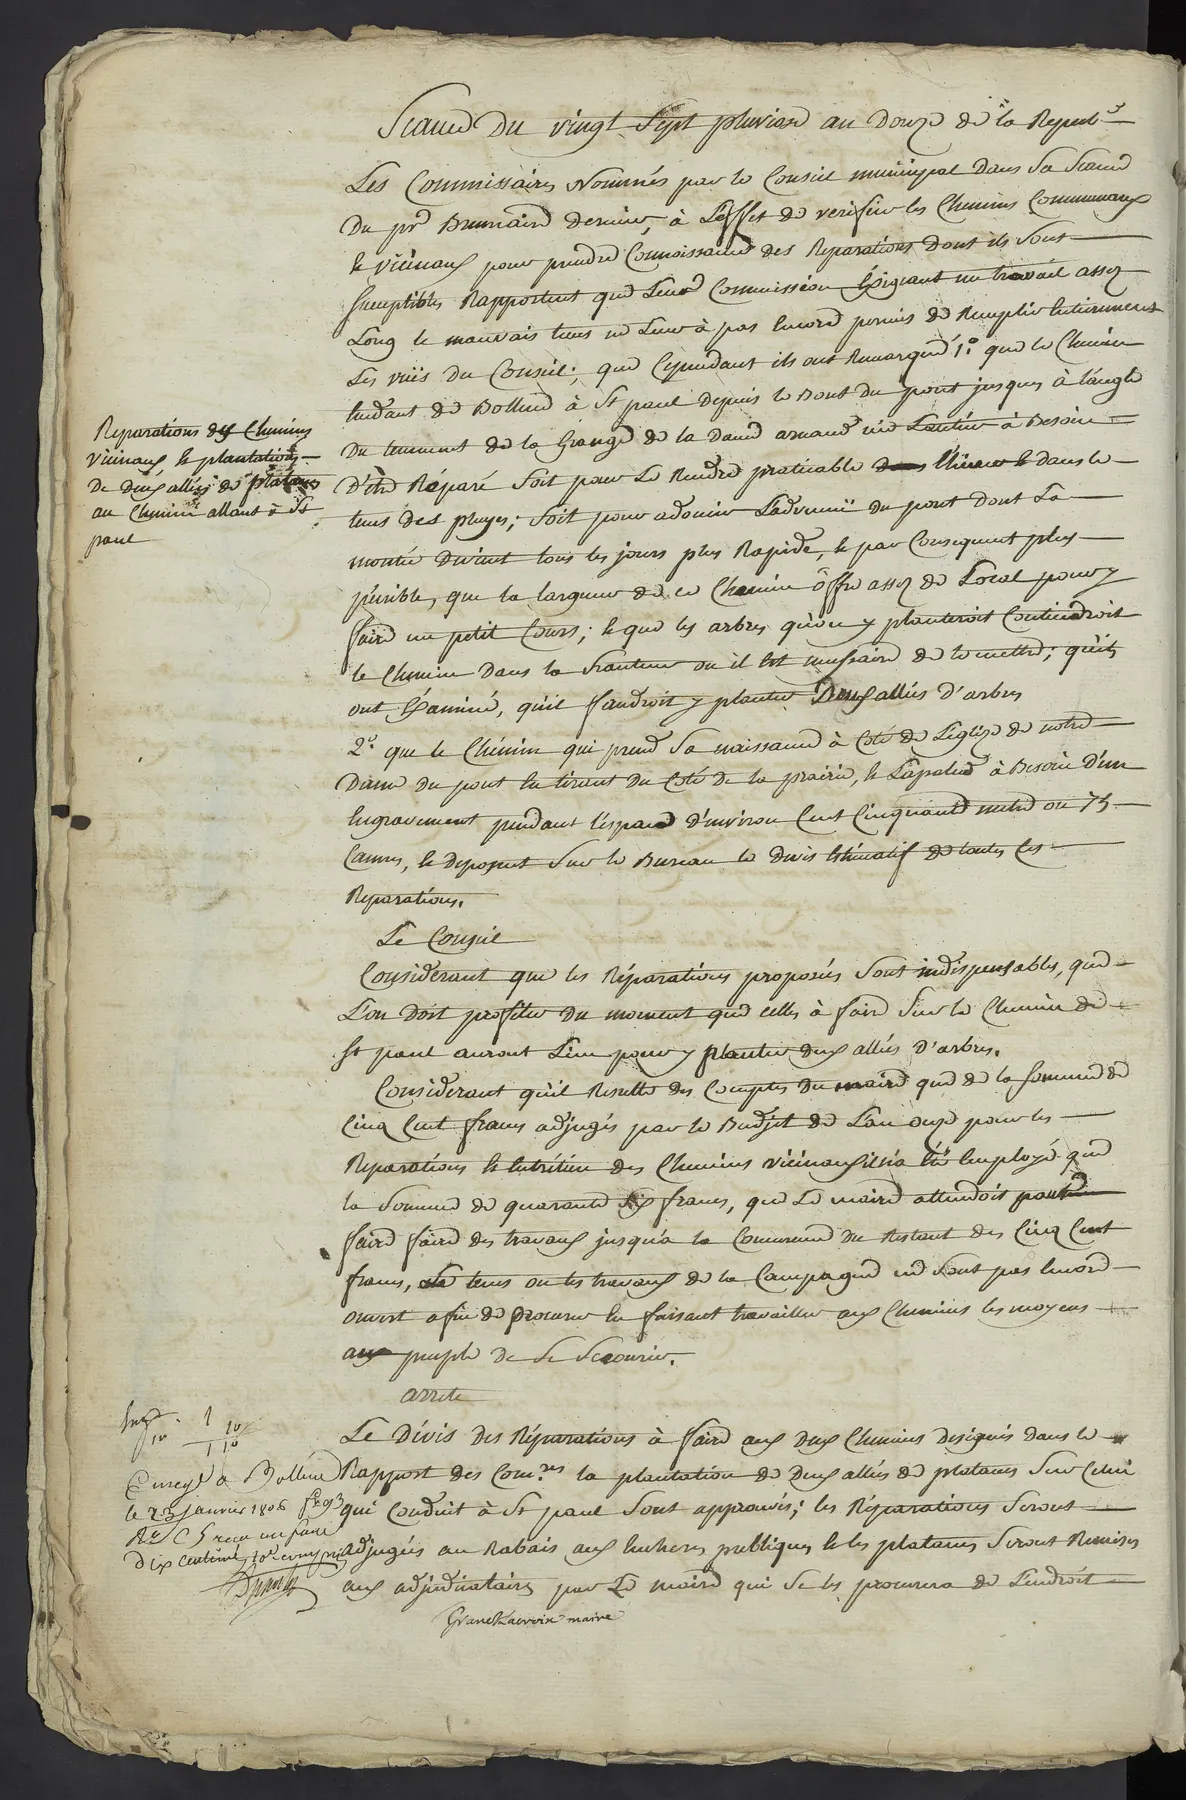 Seance du vingt Sept pluviose an douze de la Republ.e
Les Commissaires Nommés par le Conseil municipal dans Sa Seance
du pr. Brumaire dernier, à L'effet de verifier les Chemins Communaux
et vicinaux pour prendre Connoissance des Reparations dont ils Sont
Suceptibles Rapportent que Leur Commission Exigeant un travail assez
Long le mauvais tems ne Leur à pas Encore permis de Remplir Entierement
Les vuës du Conseil; que Cependant ils ont Remarqué 1.º que le Chemin
tendant de Bollene à St paul depuis le Bout du pont jusques à l'angle
du tenement de la Grange de la Dame arnaud née Lautier à Besoin
D'être Réparé Soit pour Le Rendre praticable dans le
tems des pluyes; Soit pour adoucir L'advenuë du pont dont La
montée devient tous les jours plus Rapide, et par Consequent plus
pénible, que la largeur de ce Chemin offre assez de Local pour y
faire un petit Cours; et que les arbres qu'on y planteroit Contiendroit
le Chemin dans la hauteur ou il Est necessaire de le mettre; qu'ils
ont Examiné, qu'il faudroit y planter Deux allées d'arbres
2.º que le Chémin qui prend Sa naissance à Coté de L'eglise de notre
Dame du pont En tirant du Coté de la prairie, et Lapalud à Besoin d'un
Engravement pendant l'espace d'environ Cent Cinquante metre ou 75
Cannes, et deposent Sur le Bureau le devis Estimatif de toutes Ces
Reparations.
Reparations des Chemins
vicinaux et plantations
de deux allées de platanes
au Chemin allant à St
paul
Le Conseil
Considerant que les Réparations proposées Sont indispensables, que
L'on doit profiter du moment que celles à faire Sur le Chemin de
St paul auront Lieu pour y planter deux allées d'arbres.
Considerant qu'il Resulte des Comptes du maire que de la Somme de
Cinq Cent francs adjugés par le Budjet de L'an onze pour les
Reparations et Entretien des Chemins vicinaux il n'a été Employé que
la Somme de quarante Six francs, que Le maire attendoit pour
faire faire des travaux jusqu'a la Concurrence du Restant des Cinq Cent
francs, Le tems ou les travaux de la Campagne ne Sont pas Encore
ouvert afin de procurer En faisant travailler aux Chemins les moyens
aux peuple de Se Secourir.
arrete
Le Dévis des Réparations à faire aux deux Chemins designés dans le
Rapport des Com.res la plantation de deux allées de platanes Sur Celui
qui Conduit à St paul Sont approuvés; les Réparations Seront
adjugées au Rabais aux Encheres publiques et les platanes Seront Remises
aux adjudicataires par Le maire qui Se les procurera de L'endroit
1 10
Enregé a Bollene
le 23 janvier 1806
reçu un franc
Dix centimes
Granet Lacroix maire